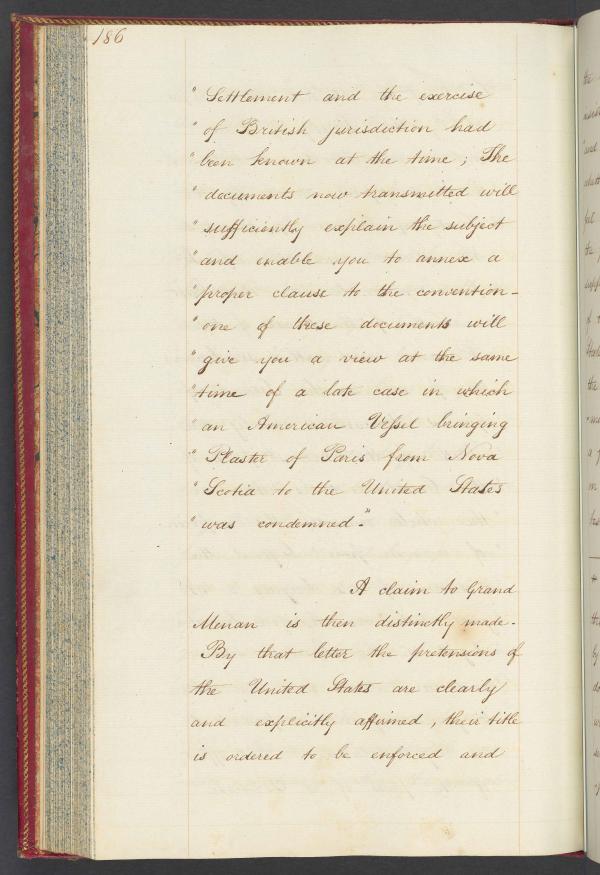 186
" Settlement and the exercise
" of British jurisdiction had
" been known at the time ; The
" documents now transmitted will
" sufficiently explain the subject
" and enable you to annex a
" proper clause to the convention -
" one of these documents will
" give you a view at the same
" time of a late case in which
" an American Vessel bringing
" Plaster of Paris from Nova
" Scotia to the United States
" was condemned."
A claim to Grand
Menan is then distinctly made.
By that letter the pretensions of
the United States are clearly
and explicitly affirmed, their title
is ordered to be enforced and